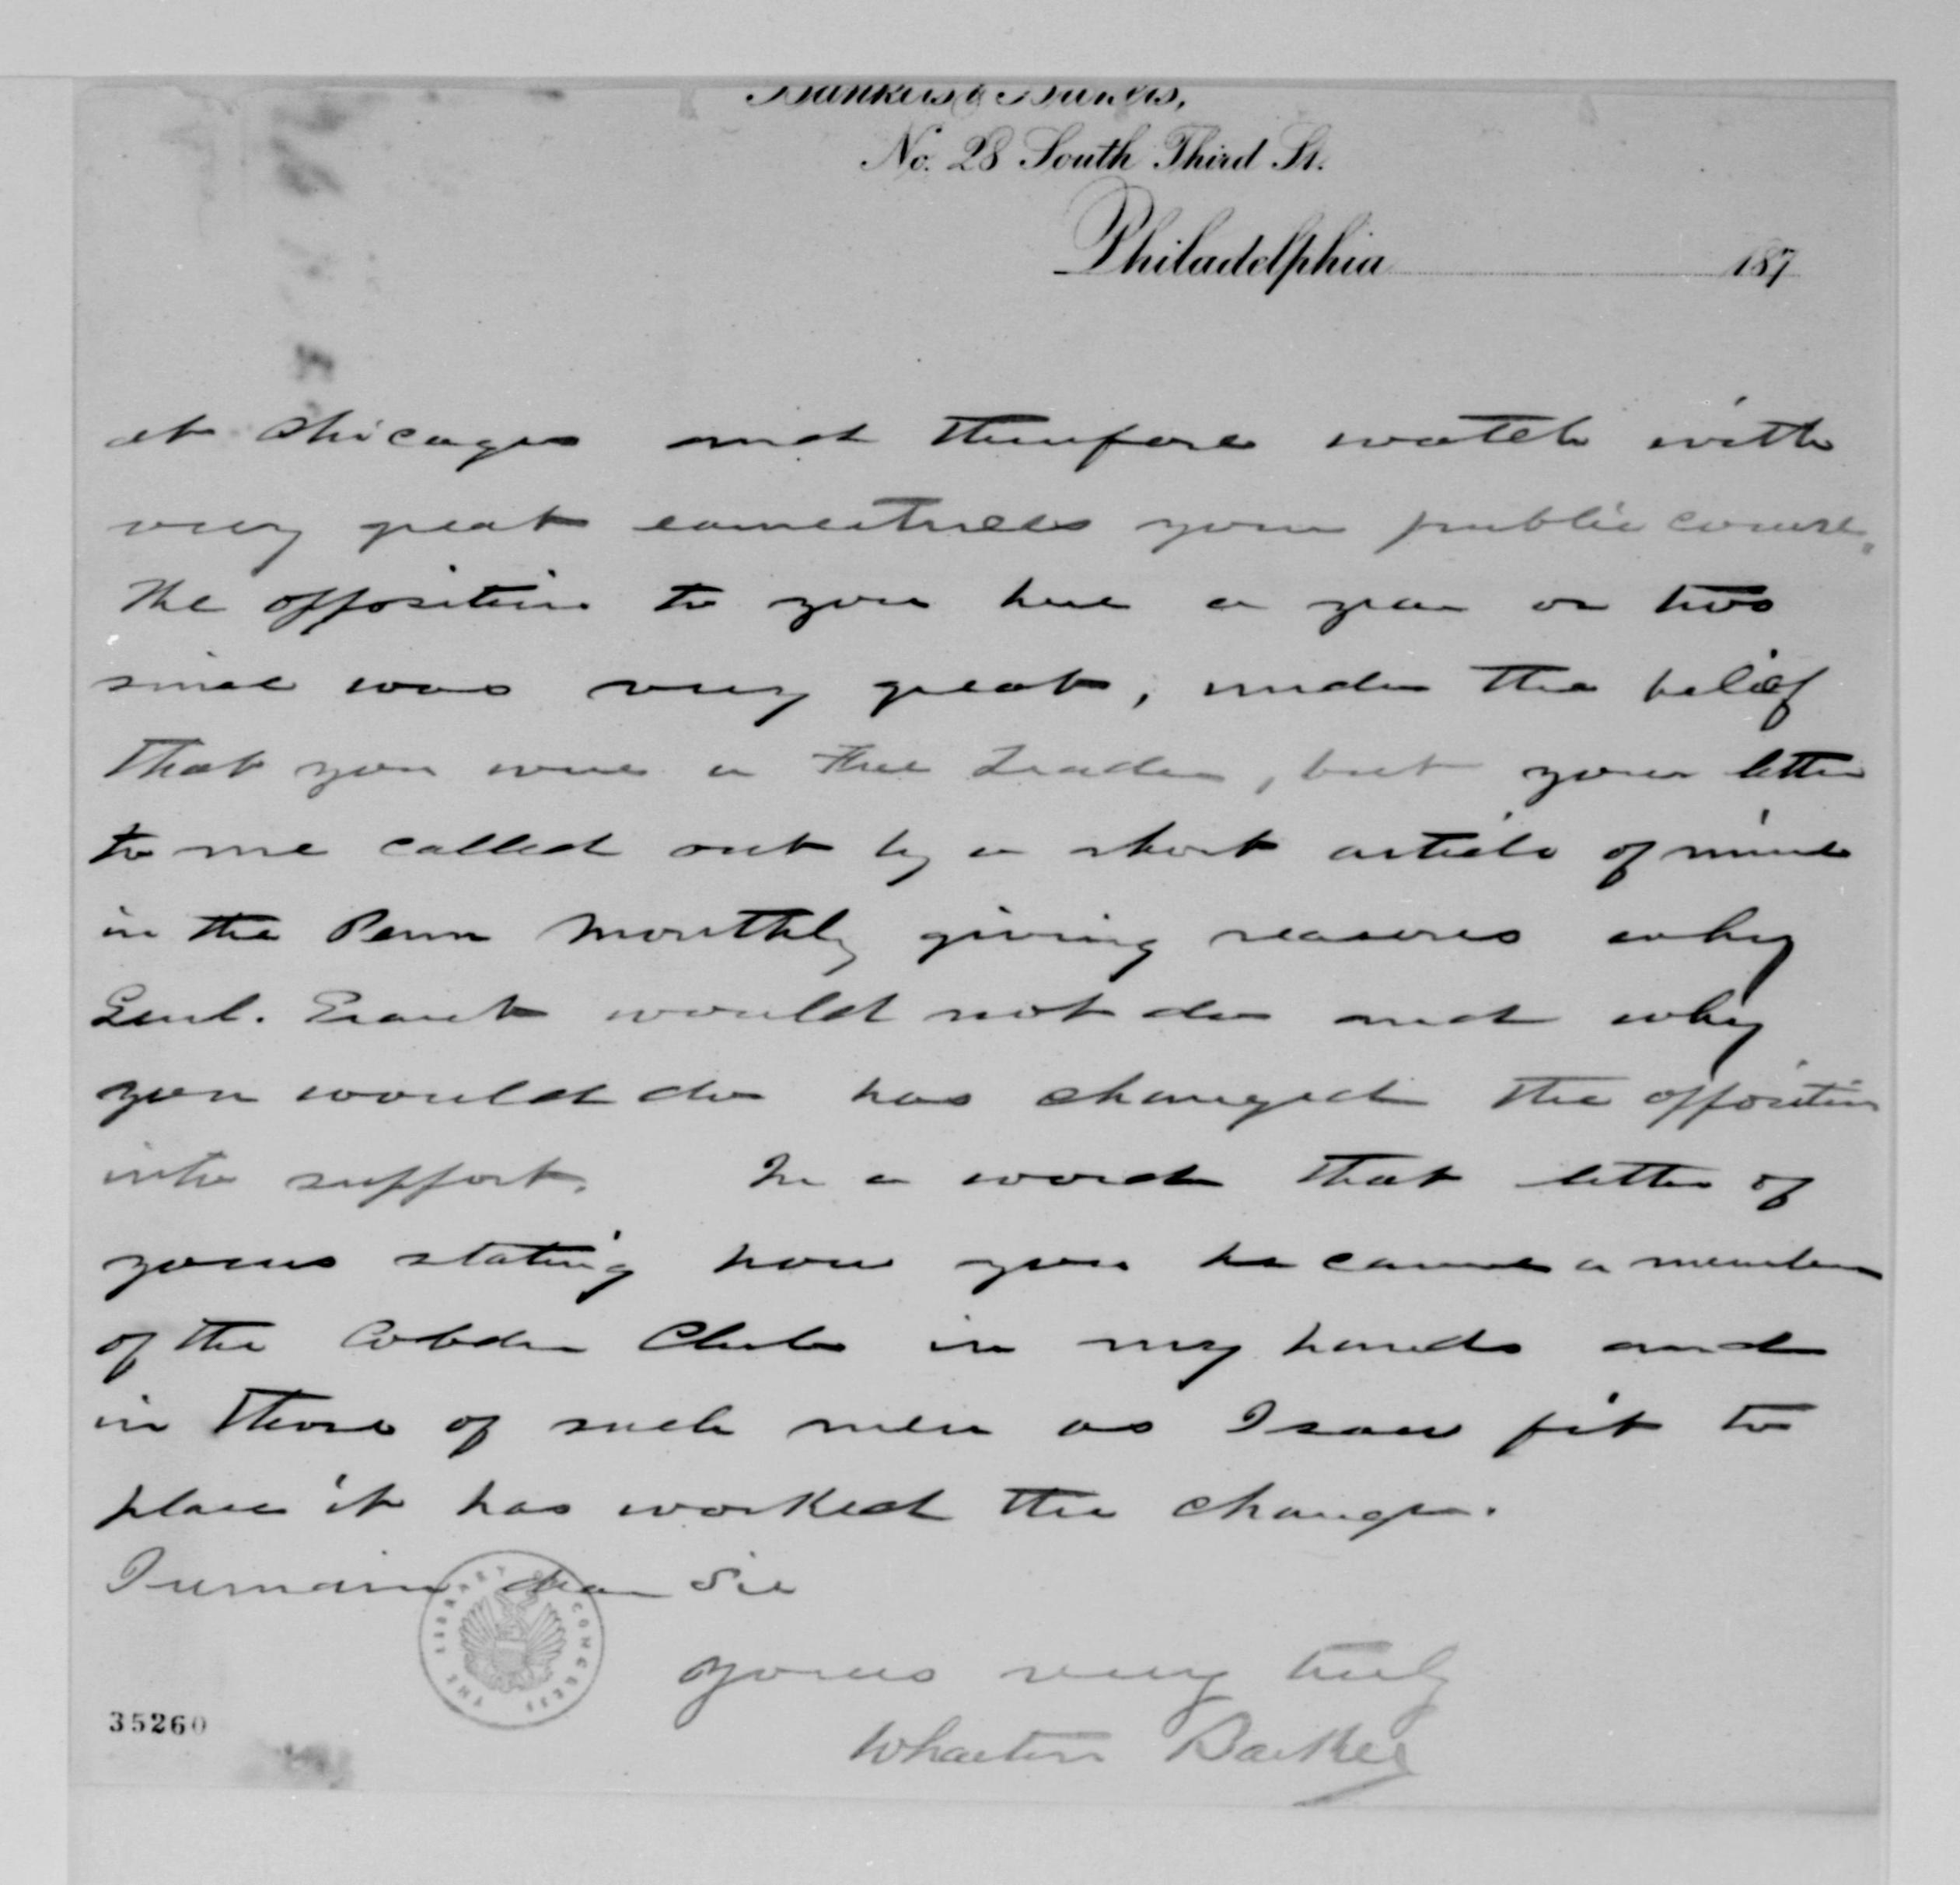 Bankers & Brokers,
No. 28 South Third St.
Philadelphia 187
at Chicago and therefore watch with
very great earnestness your public course.
The opposition to you here a year or two
since was very great, under the belief
that you were a Free Trader, but your letter
to me called out by a short article of mine
in the Penn Monthly giving reasons why
Genl. Grant would not do and why
you would do has changed the opposition
into support. In a word that letter of
yours stating how you became a member
of the Cobden Club in my hands and
in those of such men as I saw fit to
place it has worked the change.
I remain dear Sir
yours very truly
Wharton Barker
THE LIBRARY OF CONGRESS
35260